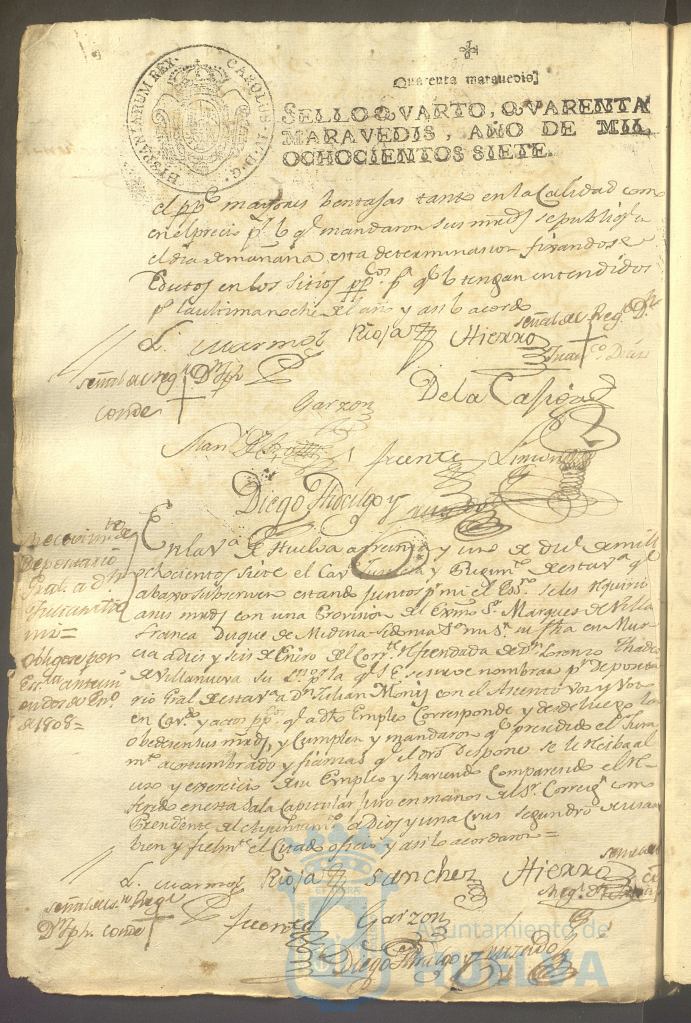 HISPANIARUM REX. CAROLUS IV D.G.
Quarenta maravedis
SELLO QVARTO, QVARENTA
MARAVEDIS, AÑO DE MIL
OCHOCIENTOS SIETE.
mayores bentajas tanto en la Calidad como
en el precio pr. lo qe. mandaron sus mrds. se publiqe.
el dia de mañana esta determinacion fixandose
Edictos en los sitios ppcos. pa. qe. lo tengan entendido
y asi lo acordo
L. Marmol Rioja Hierro señal del Regor. Dn.
Juan Franco. Diaz
señal del regr. Dn. Jph
Conde
Garzon
De la Casa
Manl. de
fuente Limon
Diego Hidalgo y
Recevimto. de
Depositario
Gral. a Dn.
Julian
En la va. de Huelva a treinta y uno de Dice. de mill
ochocientos siete el Cav. Justicia y Regimto. de esta va. qe.
abajo subscriven estando juntos pr. mi el Essno. seles requirio
a sus mrds. con una Provision del Exmo. Sr. Marques de Villa
franca Duque de Medina Sidonia Sor. mi Sr. su fha en Mur
cia a dies y seis de Enero del Corrte. refrendada de Dn. Lorenzo Thadeo
de Villanueva su srio. pr. la qe. S.E. se sirve nombrar pr. Deposita
rio Gral. de esta va. a Dn. Julian Monis con el Asiento Voz y Voto
en Cavdo. y actos ppcos. qe. a dho Empleo Corresponde y desde luego lo
obedecen sus mrds. y Cumplen y mandaron qe. precedido el Juram
to. acostumbrado y fianzas qe. el dro. dispone se le reciba al
uso y exercicio de su Empleo y haviendo Comparecido el Re
ferido en esta Sala Capitular juro en manos del Sr. Correxr. como
Precidente del Ayuntamto. a Dios y una Cruz segun dro. de usar
bien y fielmte. el Citado oficio y asi lo acordaron =
Obligose por
de 1808 =
L. Marmol Rioja Sanchez Hierro
señal del Regr.
Dn. Jph. Conde
fuente Garzon
Diego Hidalgo y
Ayuntamiento de
HUELVA